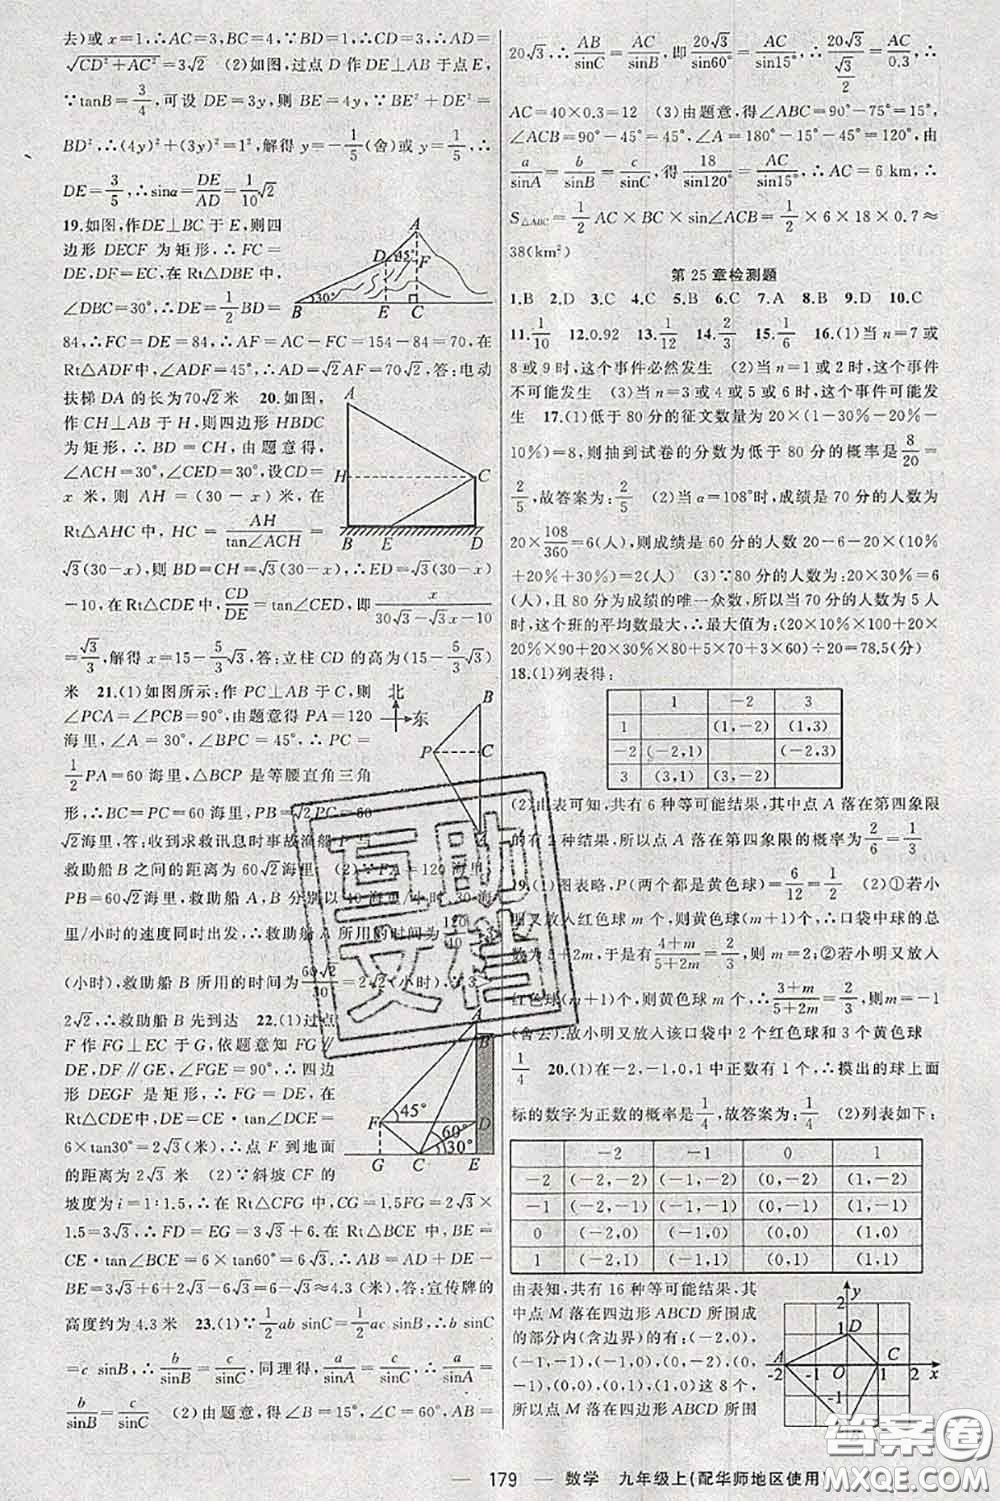 去)或 x=1,∴AC=3,BC=4,∵BD=1,∴CD=3,∴AD=
√(CD²+AC²)=3√2  (2)如图,过点 D 作 DE⊥AB 于点 E,
∵tanB=3/4,可设 DE=3y,则 BE=4y,∵BE²+DE²=
BD²,∴(4y)²+(3y)²=1²,解得 y=-1/5(舍)或 y=1/5,∴
DE=3/5,∴sinα=DE/AD=1/10√2
19.如图,作DE⊥BC 于 E,则四
边形 DECF 为矩形,∴FC=
DE,DF=EC,在 Rt△DBE 中,
∠DBC=30°,∴DE=1/2BD=
84,∴FC=DE=84,∴AF=AC-FC=154-84=70,在
Rt△ADF中,∠ADF=45°,∴AD=√2AF=70√2,答:电动
扶梯 DA 的长为70√2米  20.如图,
作 CH⊥AB 于 H,则四边形 HBDC
为矩形,∴BD=CH,由题意得,
∠ACH=30°,∠CED=30°,设CD=
x 米,则 AH=(30-x)米,在
Rt△AHC 中,HC=AH/tan∠ACH=
√3(30-x),则 BD=CH=√3(30-x),∴ED=√3(30-x)
-10,在 Rt△CDE 中,CD/DE=tan∠CED,即x/(30√3-√3x-10)
=√3/3,解得 x=15-5/3√3,答:立柱 CD 的高为(15-5/3√3)
米  21.(1)如图所示:作 PC⊥AB 于 C,则
∠PCA=∠PCB=90°,由题意得 PA=120
海里,∠A=30°,∠BPC=45°,∴PC=
1/2PA=60 海里,△BCP 是等腰直角三角
形,∴BC=PC=60 海里,PB=√2PC=60
√2海里,答:收到求救讯息时事故渔船 P 与
救助船 B 之间的距离为 60√2海里  (2)∵PA=120海里,
PB=60√2海里,救助船 A,B 分别以 40 海里/小时、30 海
里/小时的速度同时出发,∴救助船 A 所用的时间为120/40=3
(小时),救助船 B 所用的时间为60√2/30=2√2(小时),∵3>
2√2,∴救助船 B 先到达  22.(1)过点
F 作 FG⊥EC 于 G,依题意知 FG∥
DE,DF∥GE,∠FGE=90°,∴四边
形 DEGF 是矩形,∴FG=DE,在
Rt△CDE中,DE=CE·tan∠DCE=
6×tan30°=2√3(米),∴点 F 到地面
的距离为 2√3 米  (2)∵斜坡 CF 的
坡度为 i=1:1.5,∴在 Rt△CFG 中,CG=1.5FG=2√3×
1.5=3√3,∴FD=EG=3√3+6,在 Rt△BCE 中,BE=
CE·tan∠BCE=6×tan60°=6√3,∴AB=AD+DE-
BE=3√3+6+2√3-6√3=6-√3≈4.3(米),答:宣传牌的
高度约为 4.3 米  23.(1)∵1/2ab sinC=1/2ac sinB,∴b sinC
=c sinB,∴b/sinB=c/sinC,同理得,a/sinA=c/sinC,∴a/sinA=
b/sinB=c/sinC  (2)由题意,得∠B=15°,∠C=60°,AB=
20√3,∴AB/sinC=AC/sinB,即20√3/sin60°=AC/sin15°,∴20√3/(√3/2)=AC/0.3,∴
AC=40×0.3=12  (3)由题意,得∠ABC=90°-75°=15°,
∠ACB=90°-45°=45°,∠A=180°-15°-45°=120°,由
a/sinA=b/sinB=c/sinC,得18/sin120°=AC/sin15°,∴AC=6 km,∴
S△ABC=1/2AC×BC×sin∠ACB=1/2×6×18×0.7≈
38(km²)
第 25 章检测题
1.B  2.D  3.C  4.C  5.B  6.C  7.A  8.B  9.D  10.C
11.1/10  12.0.92  13.1/12  14.2/3  15.1/6  16.(1)当 n=7 或
8 或 9 时,这个事件必然发生  (2)当 n=1 或 2 时,这个事件
不可能发生  (3)当 n=3 或 4 或 5 或 6 时,这个事件可能发
生  17.(1)低于 80 分的征文数量为 20×(1-30%-20%-
10%)=8,则抽到试卷的分数为低于 80 分的概率是8/20=
2/5,故答案为:2/5  (2)当 α=108°时,成绩是 70 分的人数为
20×108/360=6(人),则成绩是 60 分的人数 20-6-20×(10%
+20%+30%)=2(人)  (3)∵80 分的人数为:20×30%=6
(人),且 80 分为成绩的唯一众数,所以当 70 分的人数为 5 人
时,这个班的平均数最大,∴最大值为:(20×10%×100+20×
20%×90+20×30%×80+5×70+3×60)÷20=78.5(分)
18.(1)列表得:
1  -2  3
1  (1,-2)  (1,3)
-2  (-2,1)  (-2,3)
3  (3,1)  (3,-2)
(2)由表可知,共有 6 种等可能结果,其中点 A 落在第四象限
的有 2 种结果,所以点 A 落在第四象限的概率为2/6=1/3
19.(1)图表略,P(两个都是黄色球)=6/12=1/2  (2)①若小
明又放入红色球 m 个,则放入黄色球为 m 个,∴口袋中球的总
数为 5+2m,于是有(4+m)/(5+2m)=2/3,则 m=2;②若小明又放入
红色球(m+1)个,则黄色球 m 个,∴(3+m)/(5+2m)=2/3,则 m=-1
(舍去).故小明又放入该口袋中 2 个红色球和 3 个黄色球
20.(1)在-2,-1,0,1 中正数有 1 个,∴摸出的球上面
标的数字为正数的概率是1/4,故答案为:1/4  (2)列表如下:
-2  -1  0  1
-2  (-2,-2)  (-1,-2)  (0,-2)  (1,-2)
-1  (-2,-1)  (-1,-1)  (0,-1)  (1,-1)
0  (-2,0)  (-1,0)  (0,0)  (1,0)
1  (-2,1)  (-1,1)  (0,1)  (1,1)
由表知,共有 16 种等可能结果,其
中点 M 落在四边形 ABCD 所围成
的部分内(含边界)的有:(-2,0),
(-1,-1),(-1,0),(0,-2),(0,
-1),(0,0),(0,1),(1,0)这 8 个,
所以点 M 落在四边形 ABCD 所围
179 — 数学  九年级上(配华师地区使用)
互助
文档
答案圈
MXQE.COM